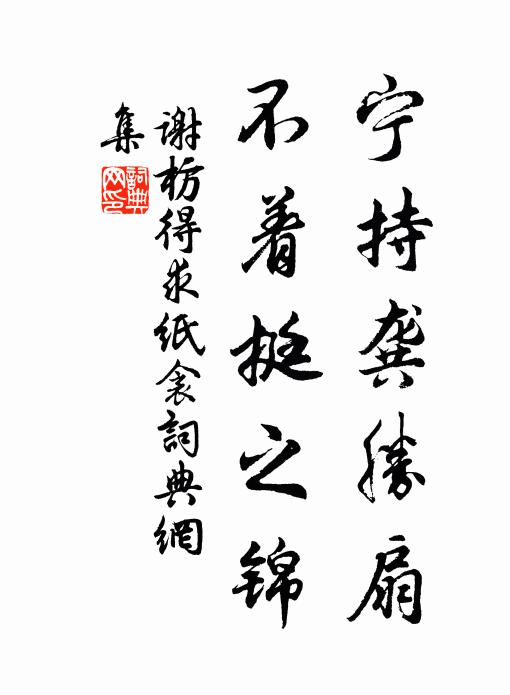 宁持龚胜扇
不着挺之锦
谢枋得求纸衾詞典網
集
詞典
网印